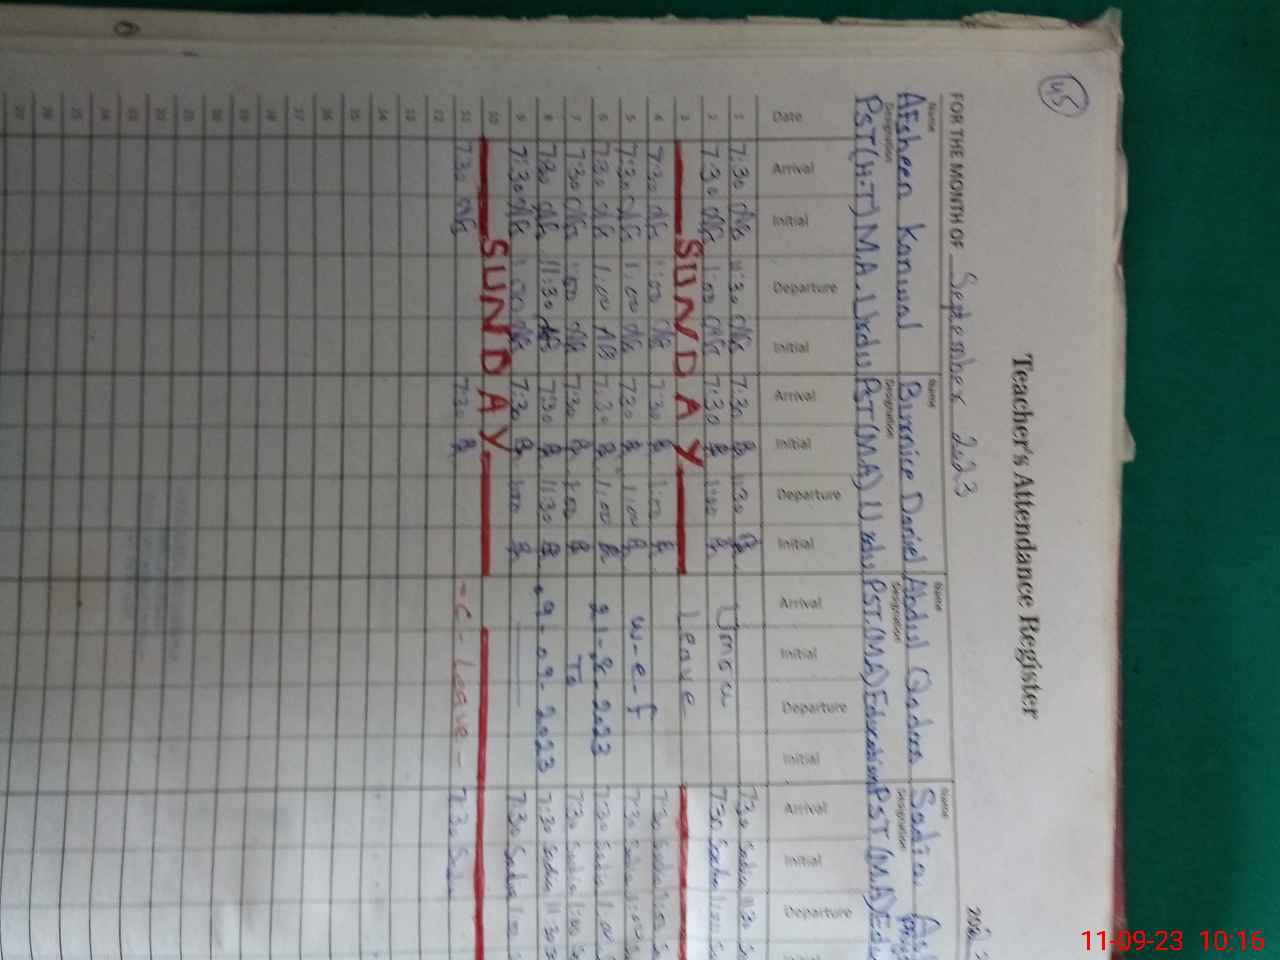 45
Teacher's Attendance Register
FOR THE MONTH OF September 2023
Name Name Name Name
Afsheen Kanwal Burnice Daniel Abdul Qadeer Sadia
Designation Designation Designation Designation
PST(H.T) M.A. Urdu PST(MA) Urdu PST.(MA) Education PST (M.A) Edu
Date Arrival Initial Departure Initial Arrival Initial Departure Initial Arrival Initial Departure Initial Arrival Initial Departure
1 7:30 11:30 7:30 B 11:30 B 7:30 Sadia 11:30
2 7:30 1:00 7:30 B 1:00 B Umra 7:30 Sadia 1:00
3 SUNDAY Leave
4 7:30 1:00 7:30 B 1:00 B 7:30 Sadia 1:00
5 7:30 1:00 7:30 B 1:00 B w-e-f 7:30 Sadia 1:00
6 7:30 1:00 7:30 B 1:00 B 21-8-2023 7:30 Sadia 1:00
7 7:30 1:00 7:30 B 1:00 B To 7:30 Sadia 1:00
8 7:30 11:30 7:30 B 11:30 B 9-09-2023 7:30 Sadia 11:30
9 7:30 1:00 7:30 B 1:00 B 7:30 Sadia 1:00
10 SUNDAY
11 7:30 7:30 B - C - Leave - 7:30
12
13
14
15
16
17
18
19
20
21
22
23
24
25
26
27
11-09-23 10:16